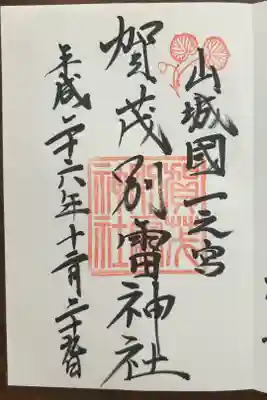 山城國一之宮
賀茂別雷神社
平成二十六年十二月二十
賀茂別雷神社